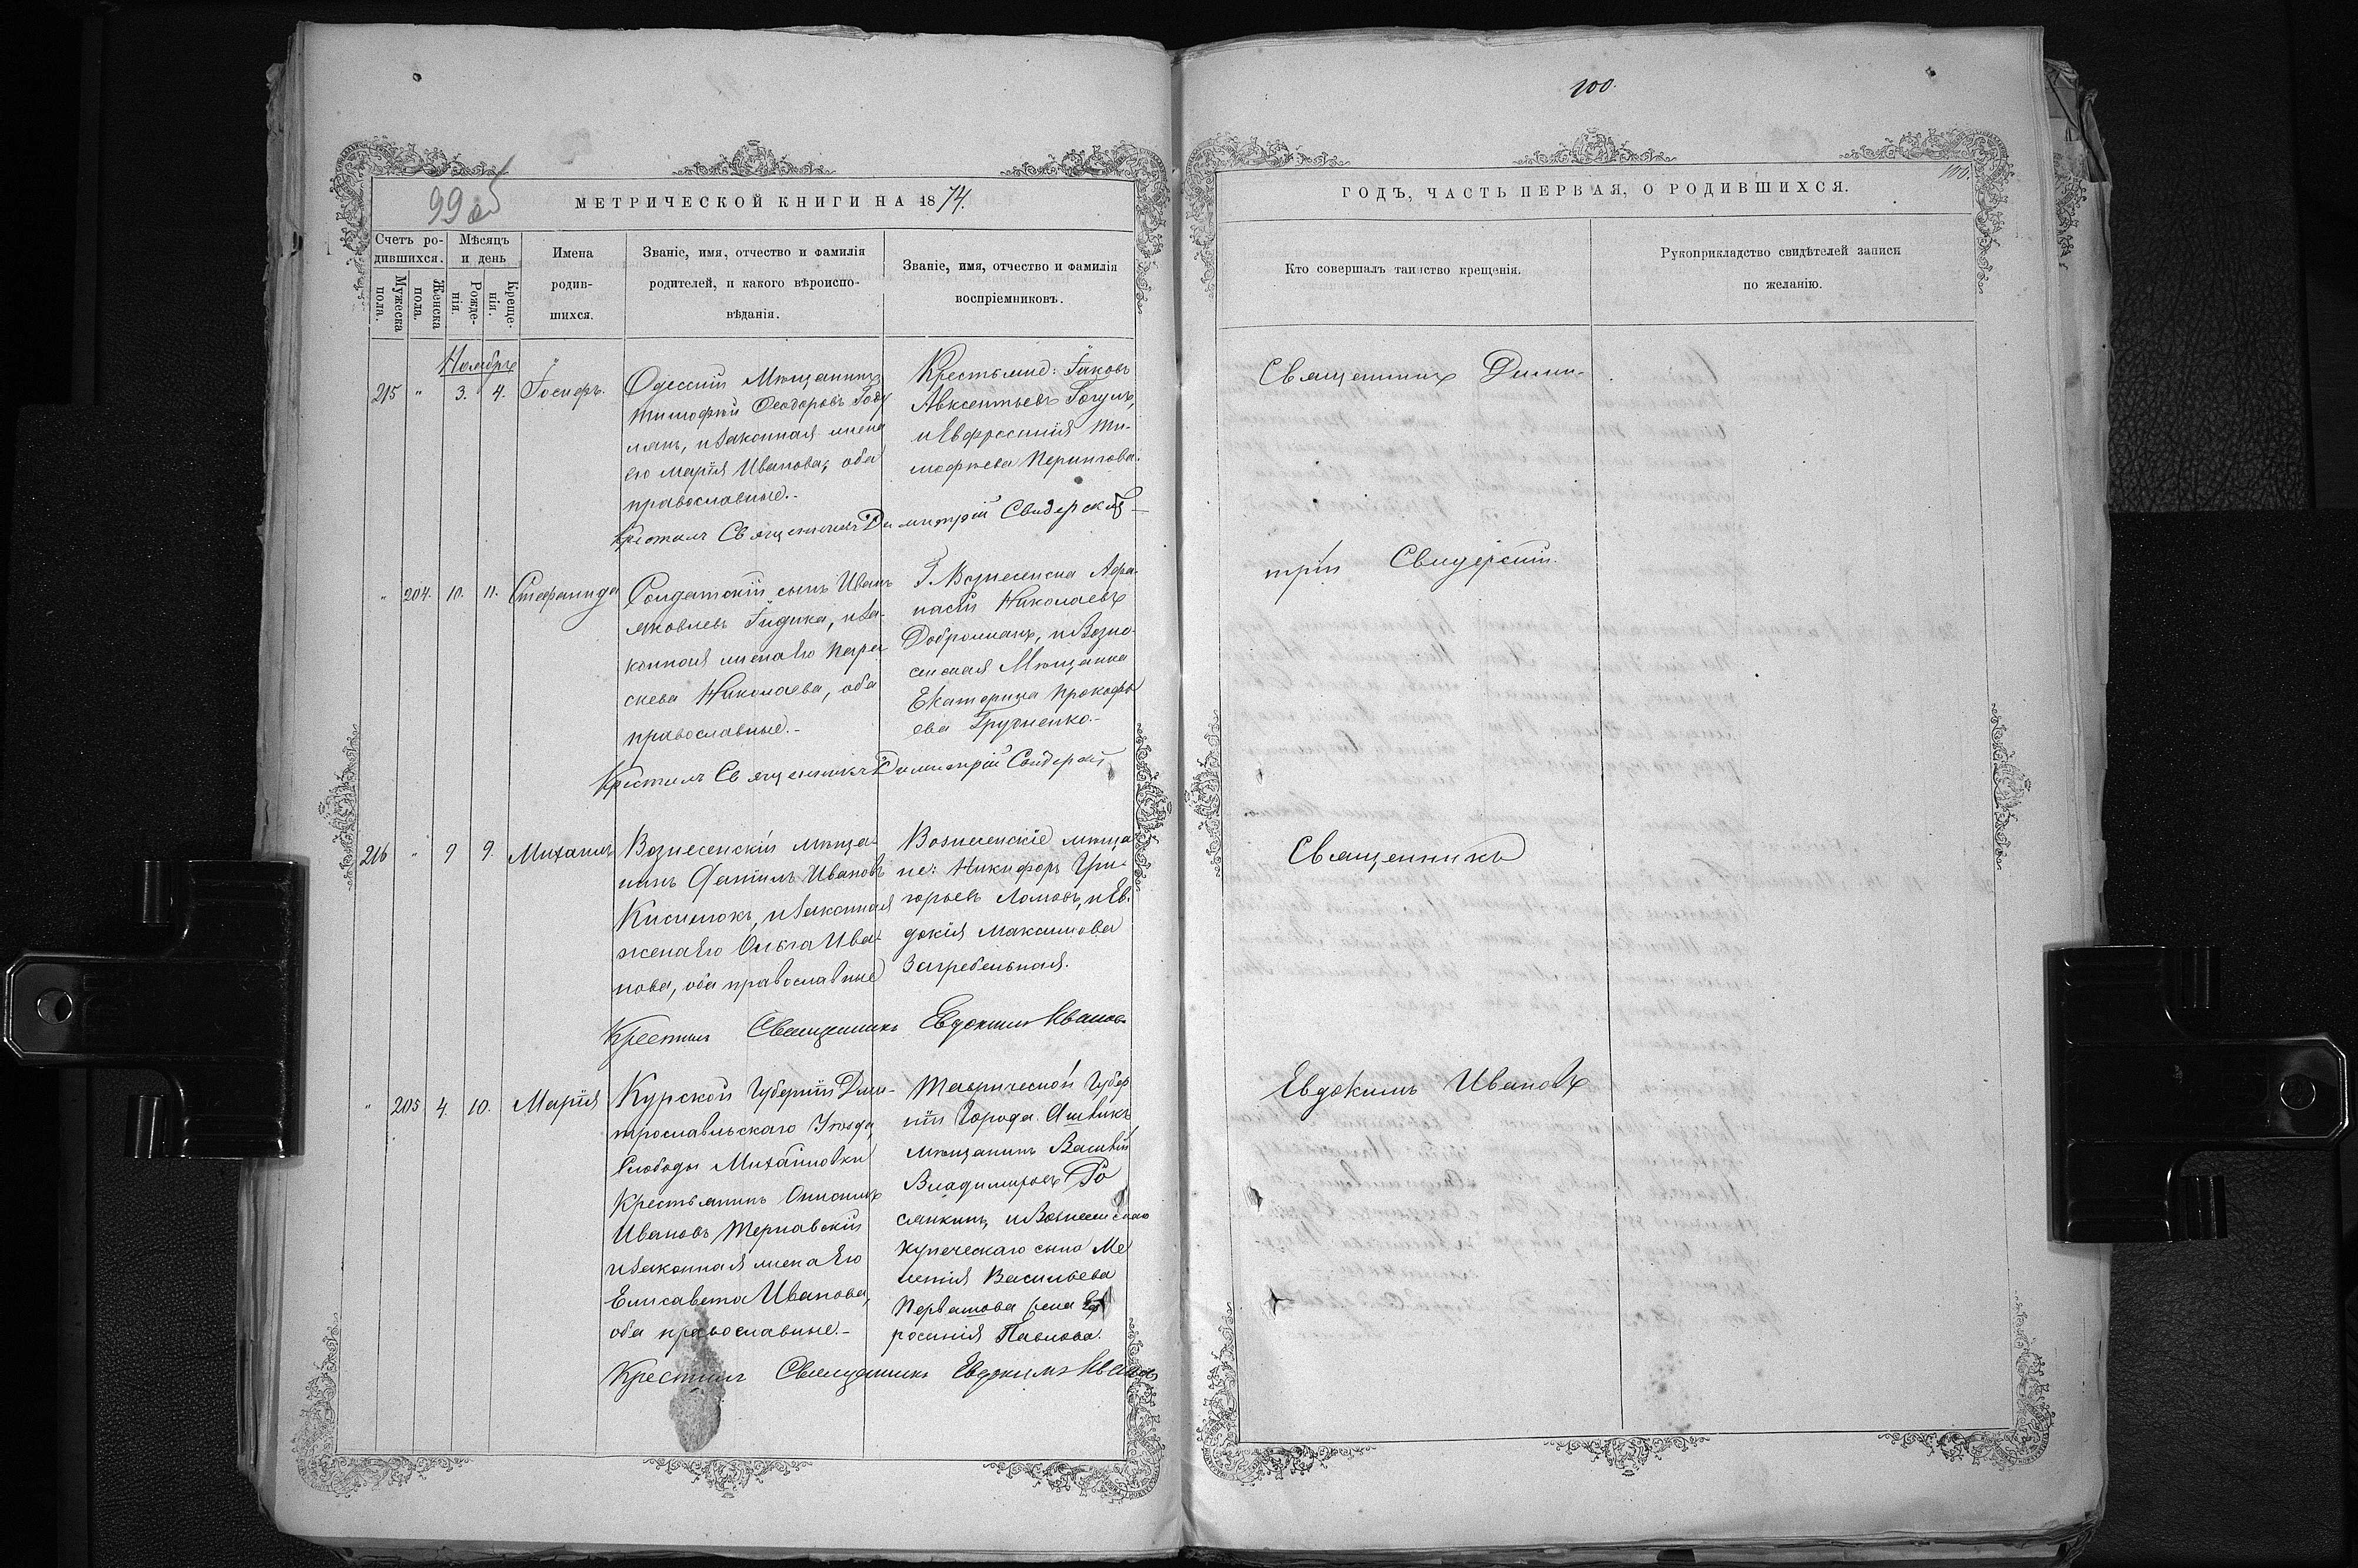 100.
99 об
МЕТРИЧЕСКОЙ КНИГИ НА 1874.
Счетъ ро-
дившихся.
Мѣсяцъ
и день
Мужеска
пола.
Женска
пола.
Рожде-
нія.
Креще-
нія.
Имена
родив-
шихся.
Званіе, имя, отчество и фамилія
родителей, и какого вѣроиспо-
вѣданія.
Званіе, имя, отчество и фамилія
воспріемниковъ.
Ноябрь
215 " 3. 4. Іосифъ.
Одесскій Мѣщанинъ
Тимофей Феодоровъ
и законная жена
его Марія Иванова, оба
православные.-
Іаковъ
Авксентьевъ
и Евфросинія Ти-
мофѣева
Крестилъ Священникъ Димитрій Свидерскій
" 204. 10. 11. Стефанида
Солдатскій сынъ Иванъ
Яковлевъ и за-
конная жена его Пара-
скева Николаева, оба
православные.-
Г. Вознесенска Афа-
насій Николаевъ
и Возне-
сенская Мѣщанка
Екатерина Прокофь
ева
Крестилъ Священникъ Димитрій Свидерскій
216 " 9 9. Михаилъ
Вознесенскій мѣща-
нинъ Даніилъ Ивановъ
и законная
жена его Ольга Ива-
нова, оба православные
Вознесенскіе мѣща
не: Никифоръ Гри-
горьевъ Ломовъ, и Ев-
докія Максимова
Загребельная.
Крестилъ Священникъ Евдокимъ Ивановъ
" 205 4. 10. Марія
Курской Губерніи Дми-
трославльскаго Уѣзда,
Слободы Михайловки
Крестьянинъ
Ивановъ Тернавскій
и законная жена Его
Елисавета Иванова,
оба православные.-
Таврической Губер
ніи Города
мѣщанинъ Василій
Владимировъ
и Вознесенскаго
купеческаго сына Ме
летія Васильева
жена Ев
росинія Павлова.
Крестилъ Священникъ Евдокимъ Ивановъ
100.
ГОДЪ, ЧАСТЬ ПЕРВАЯ, О РОДИВШИХСЯ.
Кто совершалъ таинство крещенія.
Рукоприкладство свидѣтелей записи
по желанію.
Священникъ Дими-
трій Свидерскій.
Священникъ
Евдокимъ Ивановъ